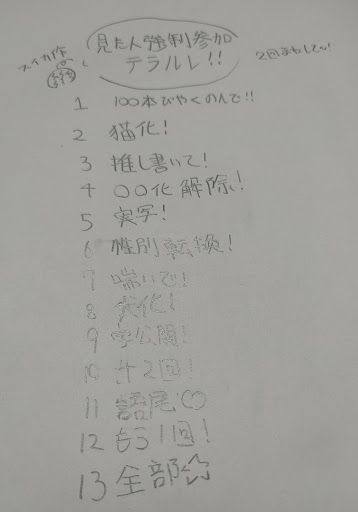 見た人強制参加
テラルレ!!
スイカ作
2回まわしてっ!
1 100本びやくのんで!!
2 猫化!
3 推し書いて!
4 〇〇化解除!
5 実写!
6 性別転換!
7 喘いで!
8 犬化!
9 字公開!
10 +2回!
11 語尾♡
12 もう1回!
13 全部☆